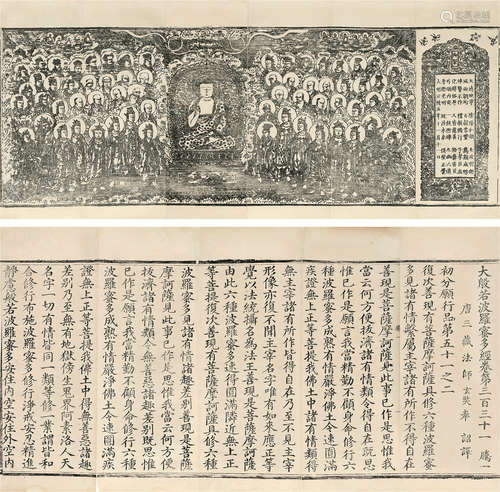 大般若波羅蜜多經卷第三百三十一 騰一
唐三藏法師玄奘奉 詔譯
初分願行品第五十一之二
復次善現有菩薩摩訶薩具修六種波羅蜜
多見諸有情繫屬主宰諸有所作不得自在
善現是菩薩摩訶薩見此事已作是思惟我
當云何方便拔濟諸有情類令得自在既思
惟已作是願言我當精勤不顧身命修行六
種波羅蜜多成熟有情嚴淨佛土令速圓滿
疾證無上正等菩提我佛土中諸有情類得
無主宰諸有所作皆得自在乃至不見主宰
形像亦復不聞主宰名字唯有如來應正等
覺以法統攝名為法王善現是菩薩摩訶薩
由此六種波羅蜜多速得圓滿隣近無上正
等菩提復次善現有菩薩摩訶薩具修六種
波羅蜜多見諸有情諸趣差別善現是菩薩
摩訶薩見此事已作是思惟我當云何方便
拔濟諸有情類令無善惡諸趣差別既思惟
已作是願言我當精勤不顧身命修行六種
波羅蜜多成熟有情嚴淨佛土令速圓滿疾
證無上正等菩提我佛土中得無善惡諸趣
差別乃至無有地獄傍生鬼界阿素洛人天
名字一切有情皆同一類等修一業謂皆和
合修行布施波羅蜜多修行淨戒安忍精進
靜慮般若波羅蜜多安住內空安住外空內